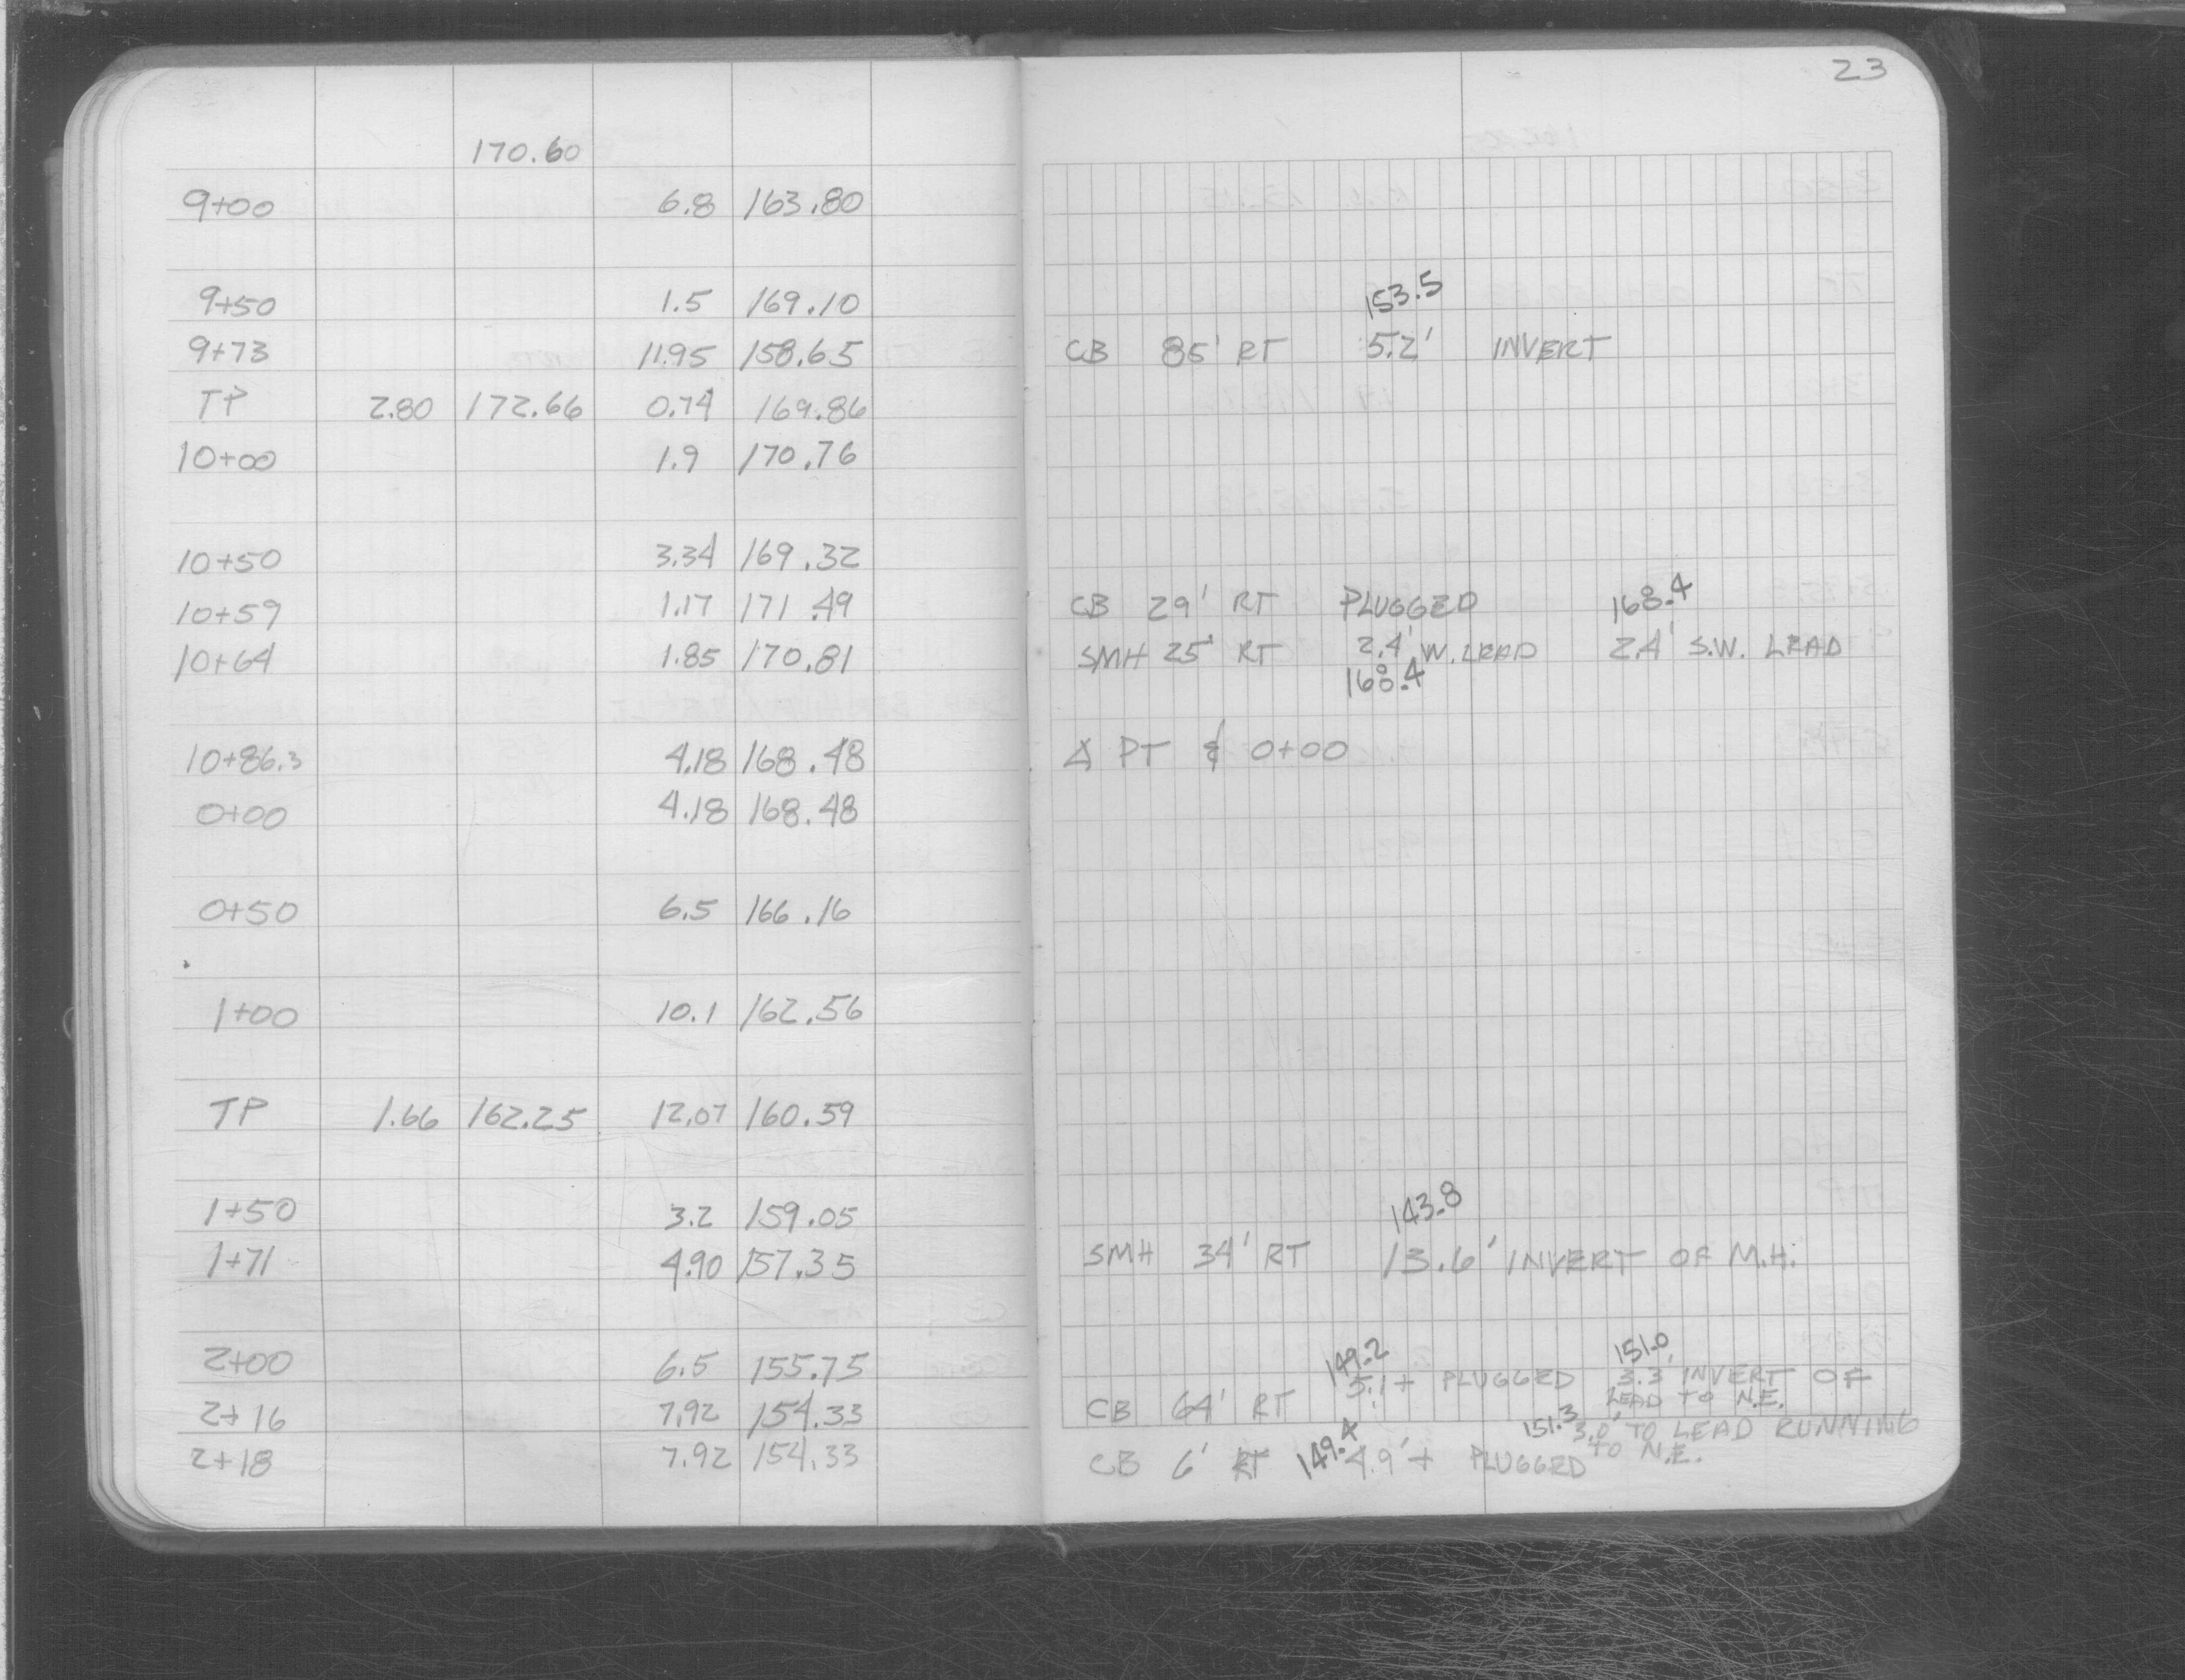 23
170.60
9+00 6.8 163.80
9+50 1.5 169.10
153.5
9+73 11.95 158.65 CB 85' RT 5.2' INVERT
TP 2.80 172.66 0.74 169.86
10+00 1.9 170.76
10+50 3.34 169.32
10+59 1.17 171.49 CB 29' RT PLUGGED 168.4
10+64 1.85 170.81 SMH 25' RT 2.4' W. LEAD 2.4' S.W. LEAD
168.4
10+86.3 4.18 168.48 ∆ PT & 0+00
0+00 4.18 168.48
0+50 6.5 166.16
1+00 10.1 162.56
TP 1.66 162.25 12.07 160.59
1+50 3.2 159.05 143.8
1+71 4.90 157.35 SMH 34' RT 13.6' INVERT OF M.H.
149.2 151.0
2+00 6.5 155.75
2+16 7.92 154.33 CB 64' RT 5.1+ PLUGGED 3.3' INVERT OF
LEAD TO N.E.
151.3 3.0' TO LEAD RUNNING
TO N.E.
2+18 7.92 154.33 CB 6' RT 149.4 4.9'+ PLUGGED